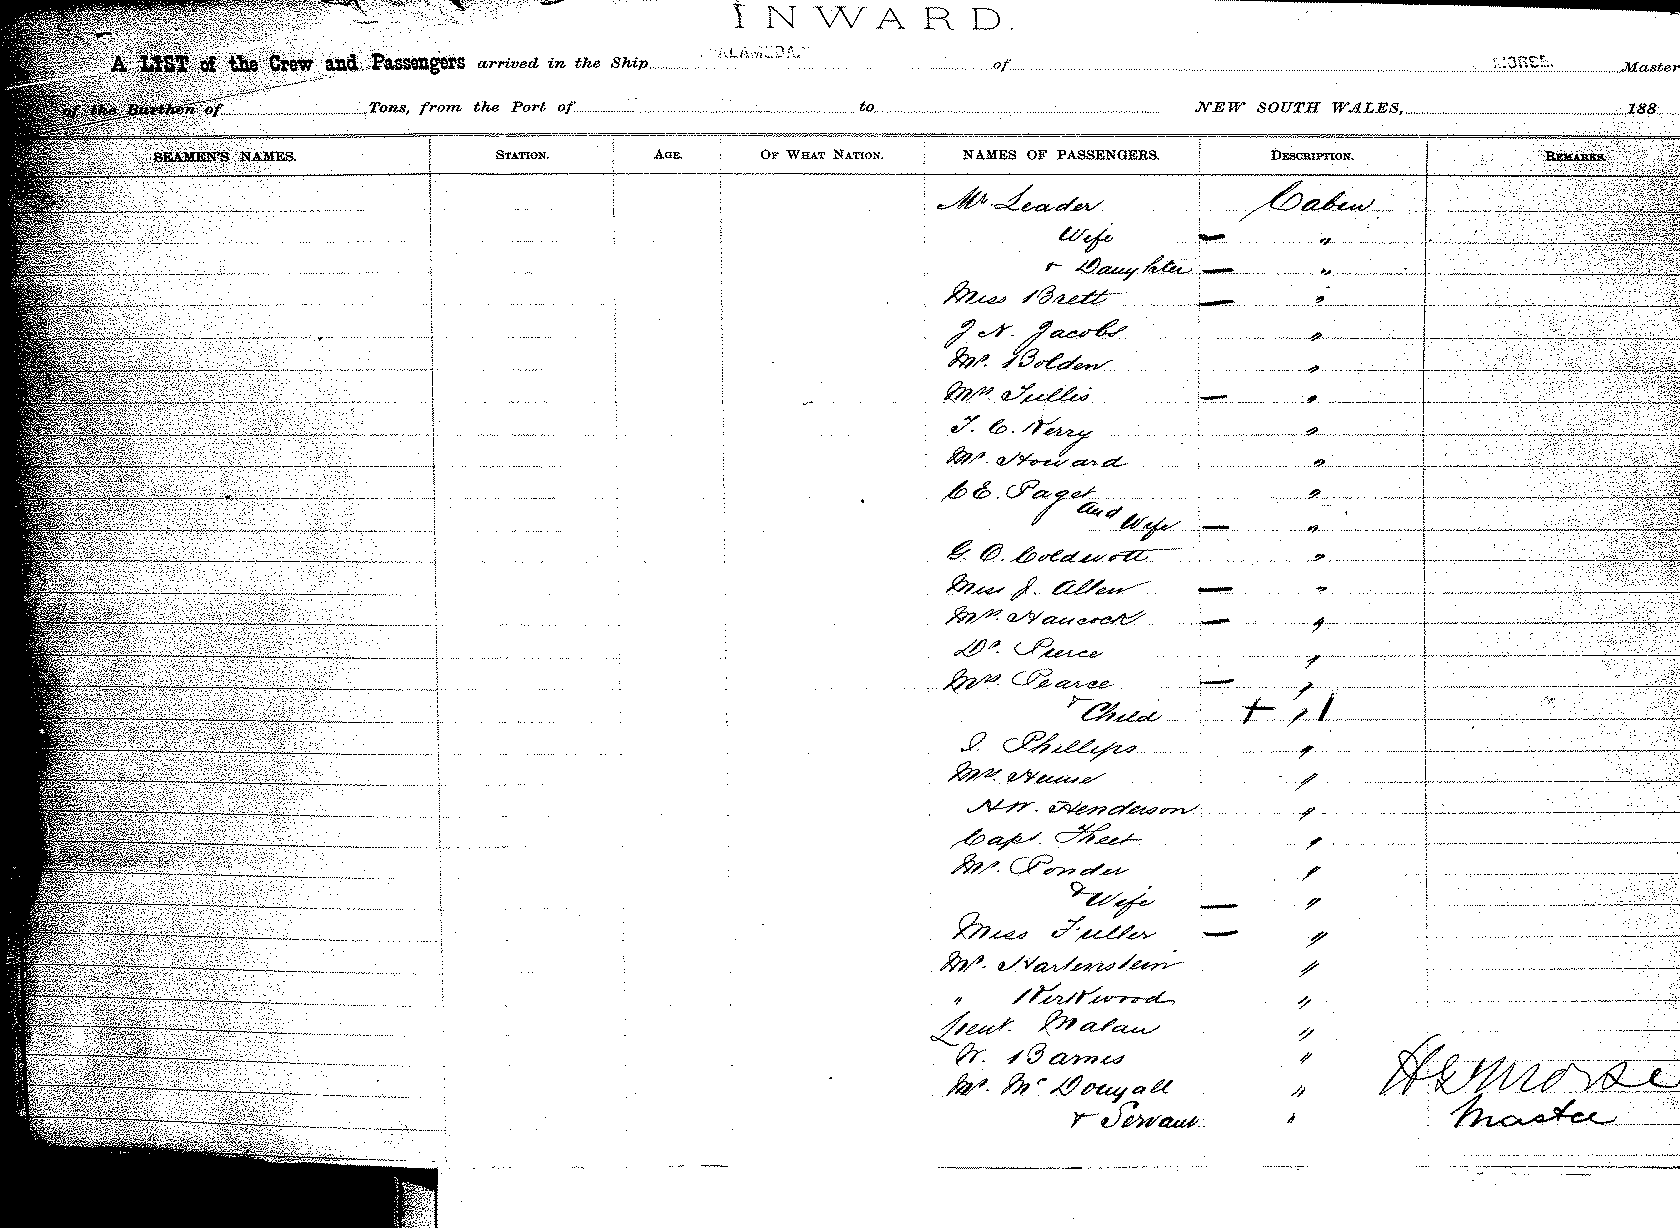 INWARD.
A LIST of the Crew and Passengers arrived in the Ship ALAMEDA of MORSE. Master
of the Burthen of Tons, from the Port of to NEW SOUTH WALES, 188
SEAMEN'S NAMES. STATION. AGE. OF WHAT NATION. NAMES OF PASSENGERS. DESCRIPTION. REMARKS.
Mr Leader Cabin
Wife — "
+ Daughter — "
Miss Brett — "
J N. Jacobs "
Mr. Bolden "
Mrs Tullis — "
T. C. Kerry "
Mr. Howard "
C E. Paget "
and Wife — "
G. O. Coldwott "
Miss J. Allen — "
Mrs. Hancock — "
Dr. Pierce "
Mrs. Pearce — "
+ Child + " 1
Phillips "
Mr. Hume "
H W. Henderson "
Capt. "
Mr. Ponder "
& Wife — "
Miss Fuller — "
Mr. Hartenstein "
" Kirkwood "
Lieut. Malan "
W. Barnes "
Mr. Mc Dougall "
+ Servant "
H G Morse
Master